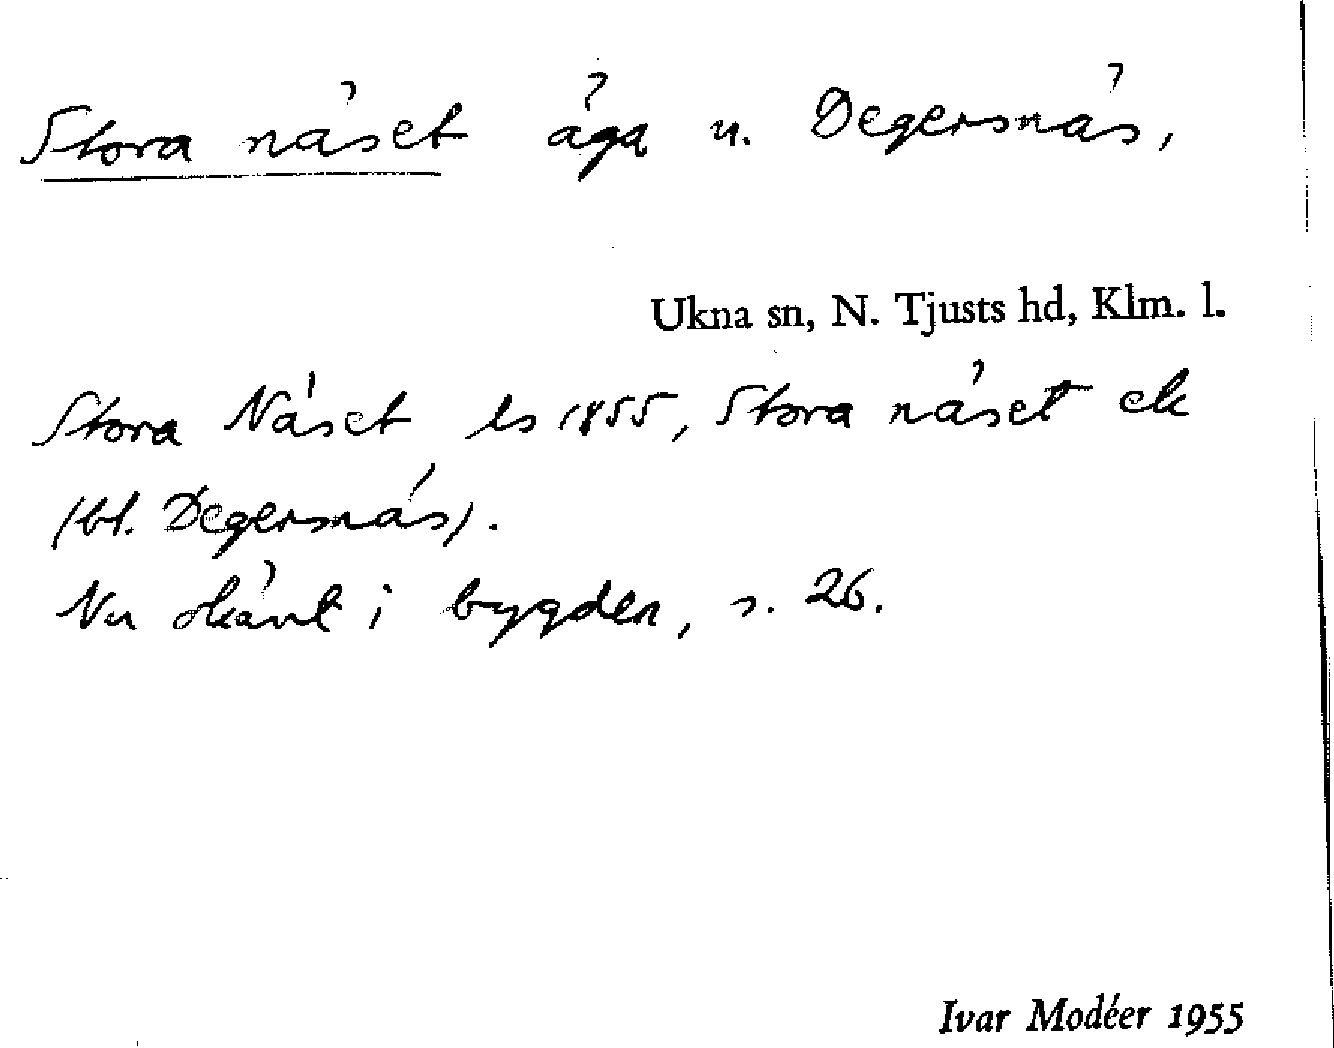 Stora näset äga u. Degersnäs,
Ukna sn, N. Tjusts hd, Klm. l.
Stora Näset ls 1855, Stora näset ek
(bl. Degersnäs).
Nu okänt i bygden, s. 26.
Ivar Modéer 1955